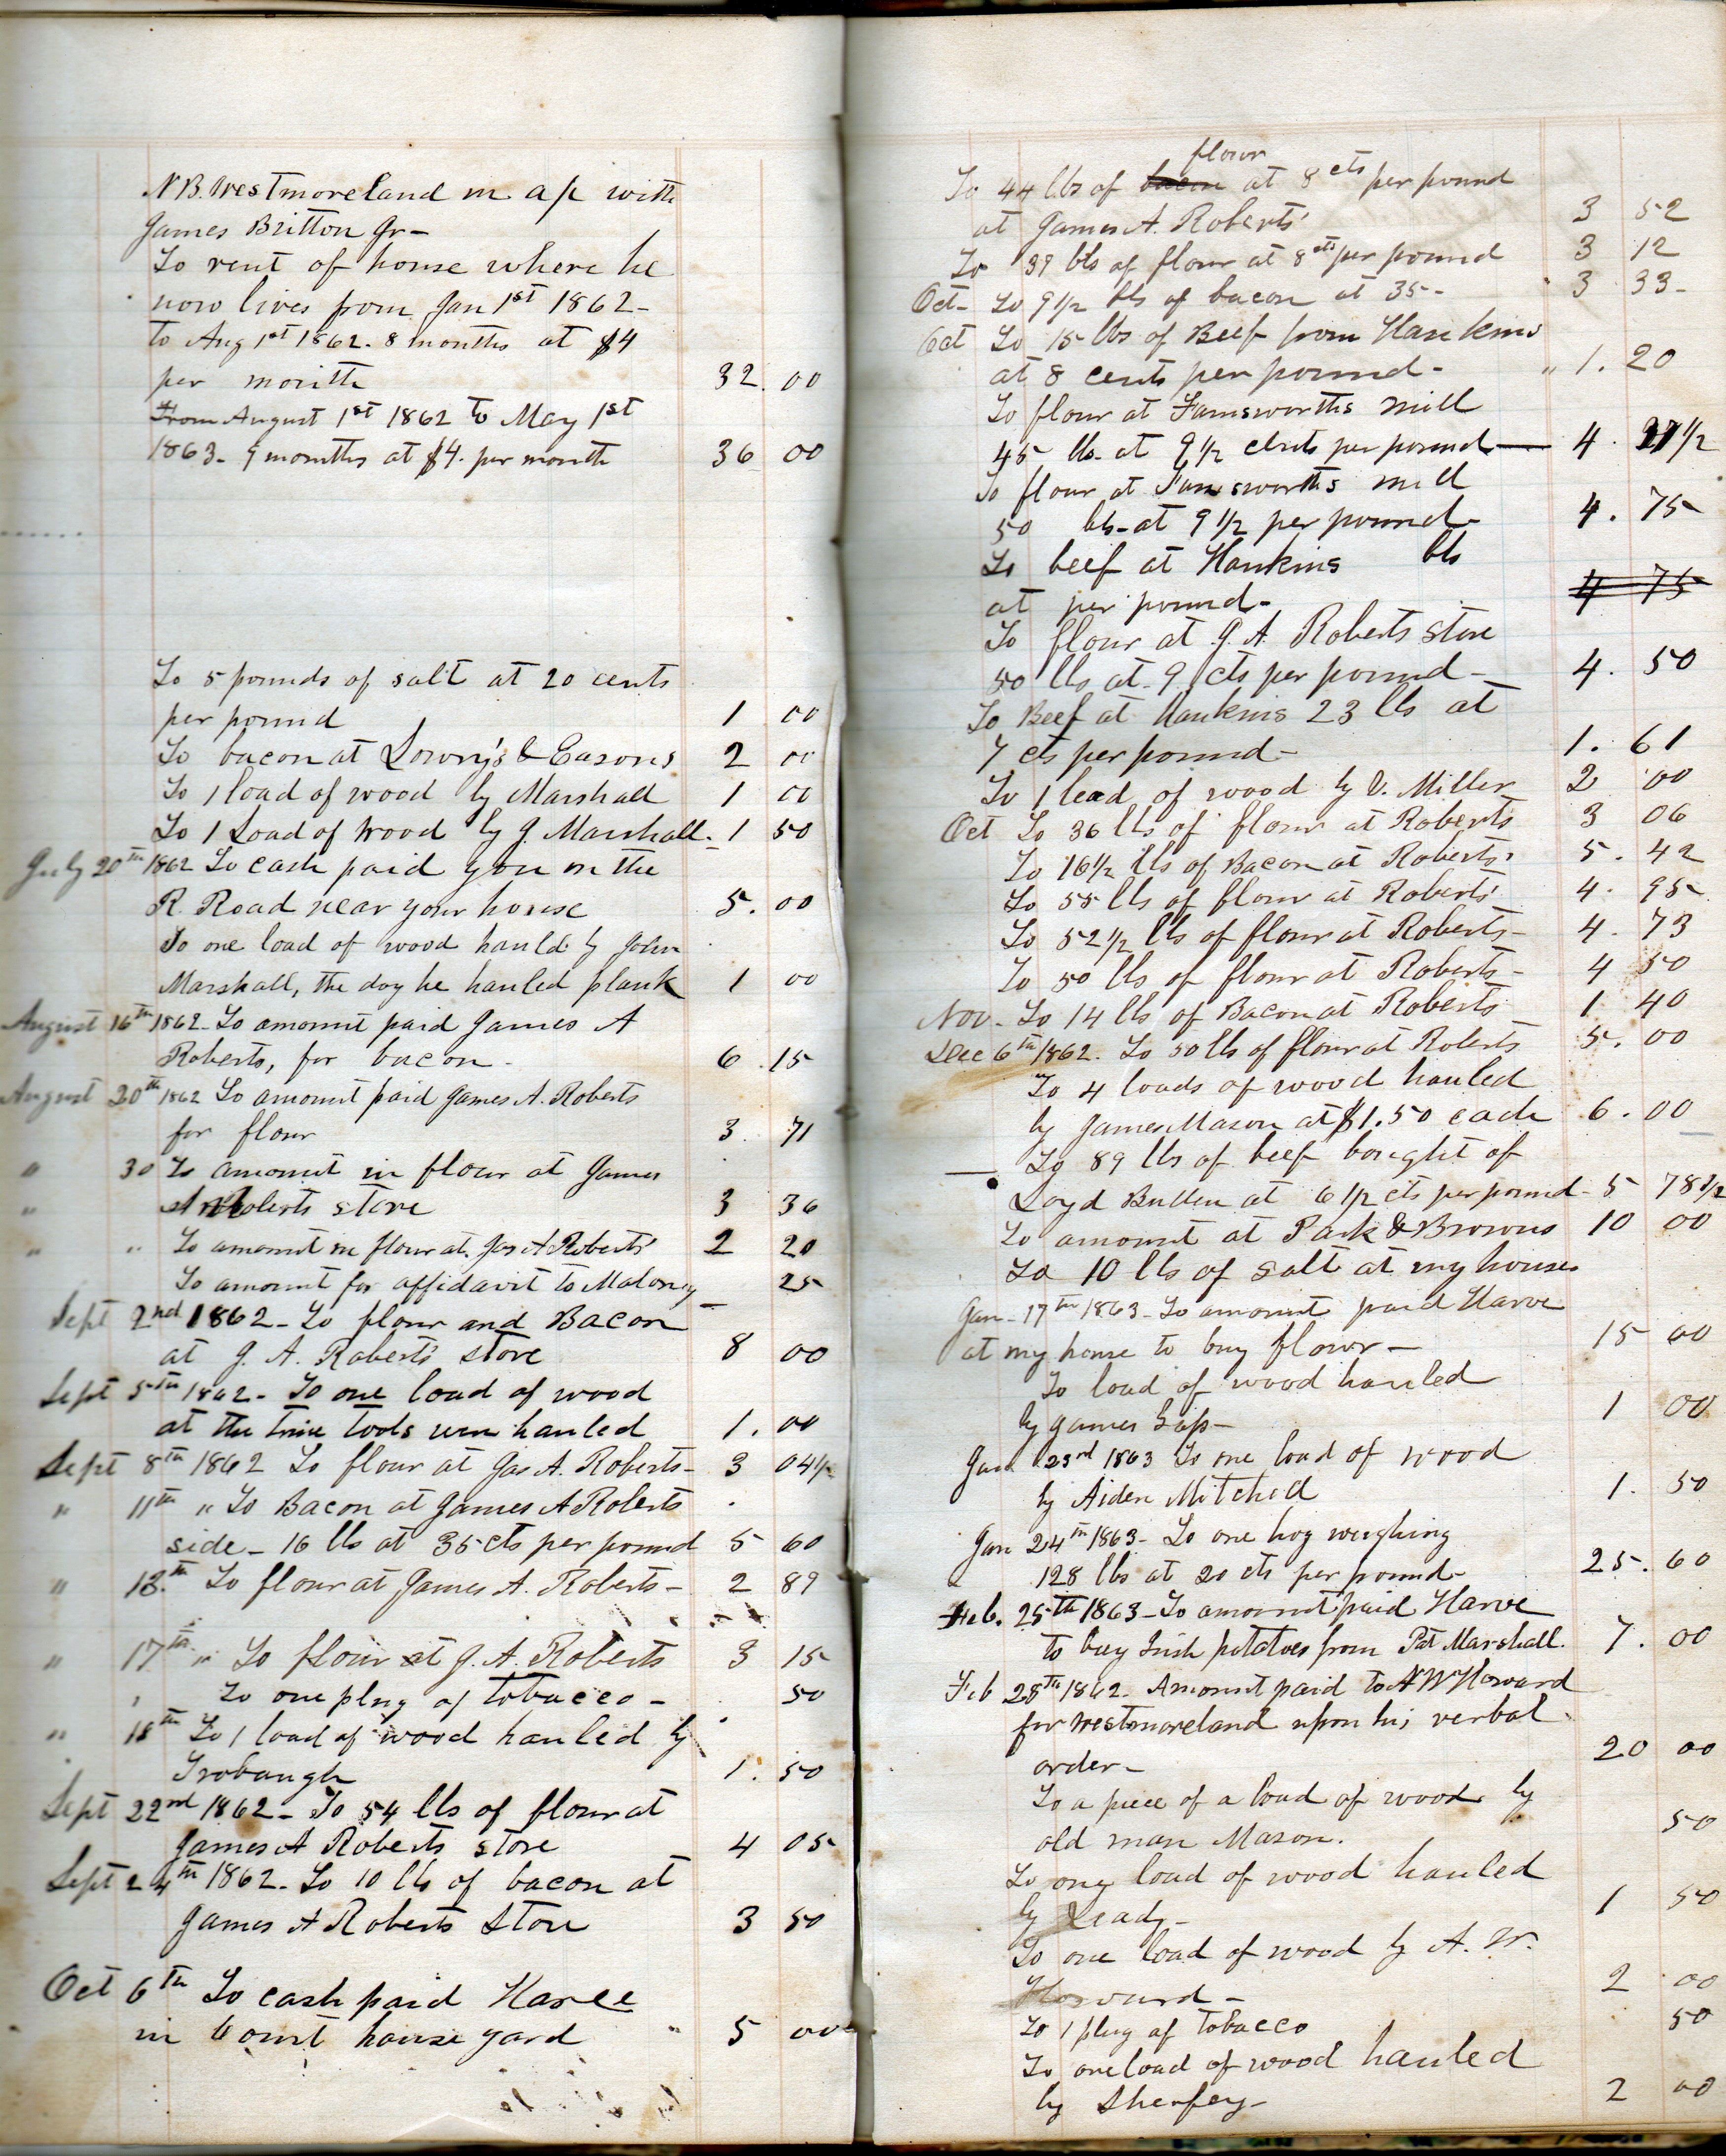 N B. Westmoreland in a/c with
James Britton Jr-
To rent of house where he
now lives from Jan 1st 1862-
to Aug 1st 1862. 8 months at $4
per month 32. 00
From August 1st 1862 to May 1st
1863- 9 months at $4. per month 36 00
To 5 pounds of salt at 20 cents
per pound 1 00
To bacon at Lowry's & Easons 2 00
To 1 load of wood by Marshall 1 00
To 1 Load of Wood by J. Marshall- 1 50
July 20th 1862 To cash paid you on the
R. Road near your house 5. 00
To one load of wood hauld by John
Marshall, the day he hauled plank 1 00
August 16th 1862- To amount paid James A
Roberts, for bacon- 6 .15
August 20th 1862 To amount paid James A. Roberts
for flour 3. 71
" 30 To amount in flour at James
" A Roberts store 3 36
" " To amount in flour at Jas A Roberts' 2 20
To amount for affidavit to Maloney 25
Sept 2nd 1862- To flour and Bacon
at J. A. Roberts' store 8 00
Sept 5th 1862- To one load of wood
at the time tools were hauled 1. 00
Sept 8th 1862 To flour at Jas A. Roberts- 3 04½
" 11th " To Bacon at James A Roberts
side- 16 lbs at 35 cts per pound 5 60
" 13th To flour at James A. Roberts- 2 89
" 17th " To flour at J. A. Roberts 3 15
To one plug of tobacco- 50
" 18th To 1 load of wood hauled by
Trobaugh 1. 50
Sept 22nd 1862- To 54 lbs of flour at
James A Roberts store 4 05
Sept 24th 1862. To 10 lbs of bacon at
James A Roberts Store 3 50
Oct 6th To cash paid Harve
in Court house yard 5 00
flour
To 44 lbs of bacon at 8 cts per pound
at James A. Roberts' 3 52
To 39 lbs of flour at 8 cts per pound 3 12
Oct- To 9 1/2 lbs of bacon at 35- 3 33-
Oct To 15 lbs of Beef from Hankins
at 8 cents per pound- " 1. 20
To flour at Farnsworths mill
45 lbs. at 9 1/2 cents per pound- 4. 27 1/2
To flour at Farnsworths mill
50 lbs- at 9 1/2 per pound- 4. 75
To beef at Hankins lbs
at per pound- 4 75
To flour at J. A. Roberts store
50 lbs at 9 cts per pound- 4. 50
To Beef at Hankins 23 lbs at
7 cts per pound- 1. 61
To 1 load of wood by V. Miller 2 00
Oct To 36 lbs of flour at Roberts 3 06
To 16 1/2 lbs of Bacon at Roberts' 5. 42
To 55 lbs of flour at Roberts' 4. 95
To 52 1/2 lbs of flour at Roberts- 4. 73
To 50 lbs of flour at Roberts- 4 50
Nov- To 14 lbs of Bacon at Roberts- 1 40
Dec 6th 1862. To 50 lbs of flour at Roberts 5. 00
To 4 loads of wood hauled
by James Mason at $1.50 each 6. 00
To 89 lbs of beef bought of
Loyd Bullen at 6 1/2 cts per pound- 5 78 1/2
To amount at Park & Browns 10 00
To 10 lbs of salt at my house
Jan- 17th 1863- To amount paid Harve
at my house to buy flour- 15 00
To load of wood hauled
by James 1 00
Jan 23rd 1863 To one load of wood
by Aiden Mitchell 1. 50
Jan 24th 1863- To one hog weighing
128 lbs at 20 cts per pound- 25. 60
Feb. 25th 1863- To amount paid Harve
to buy Irish potatoes from Pat Marshall. 7. 00
Feb 28th 1862. Amount paid to A W Howard
for Westmoreland upon his verbal
order- 20 00
To a piece of a load of wood by
old man Mason. 50
To one load of wood hauled
by Leady- 1 50
To one load of wood by A. W.
Howard- 2 00
To 1 plug of Tobacco 50
To one load of wood hauled
by Sherfey- 2 00